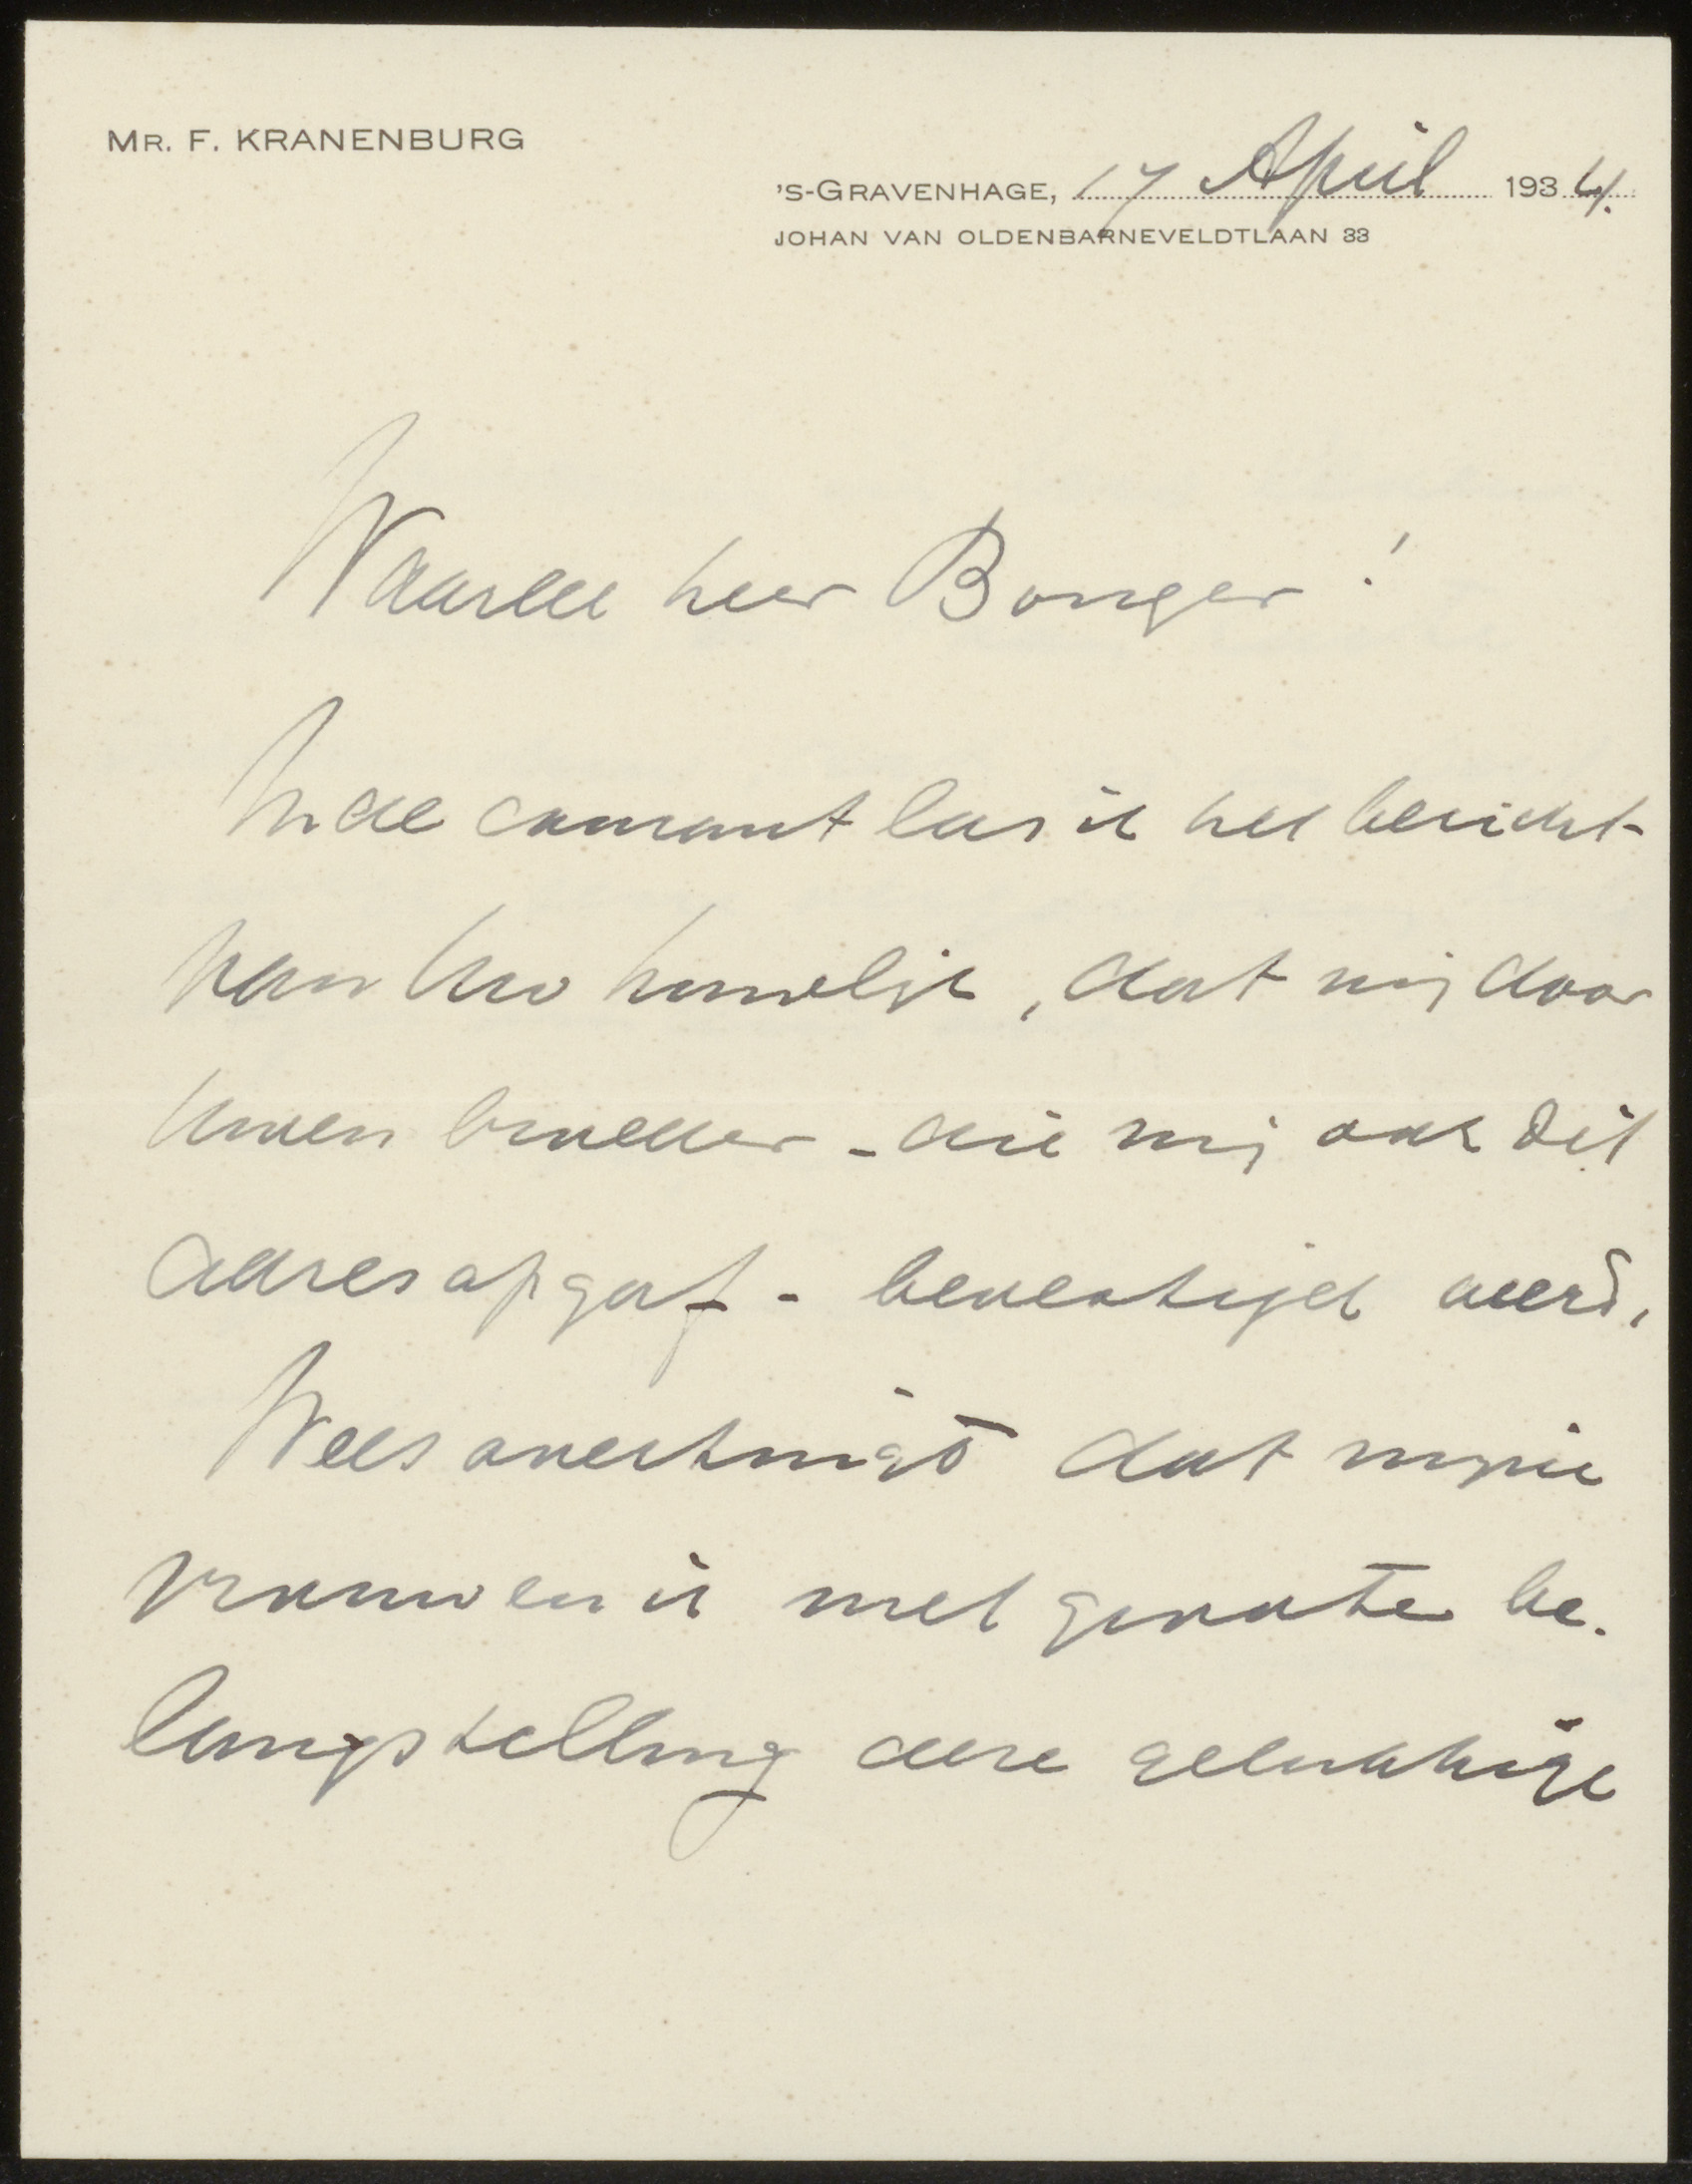 MR. F. KRANENBURG
'S-GRAVENHAGE, 17 April 1934.
JOHAN VAN OLDENBARNEVELDTLAAN 33
Waarde heer Bonger!
In de courant las ik het bericht
van Uw huwelijk, dat mij door
Uwen broeder - die mij ook dit
adres opgaf - bevestigd werd.
Wees overtuigd dat mijne
vrouw en ik met groote be-
langstelling deze gelukkige